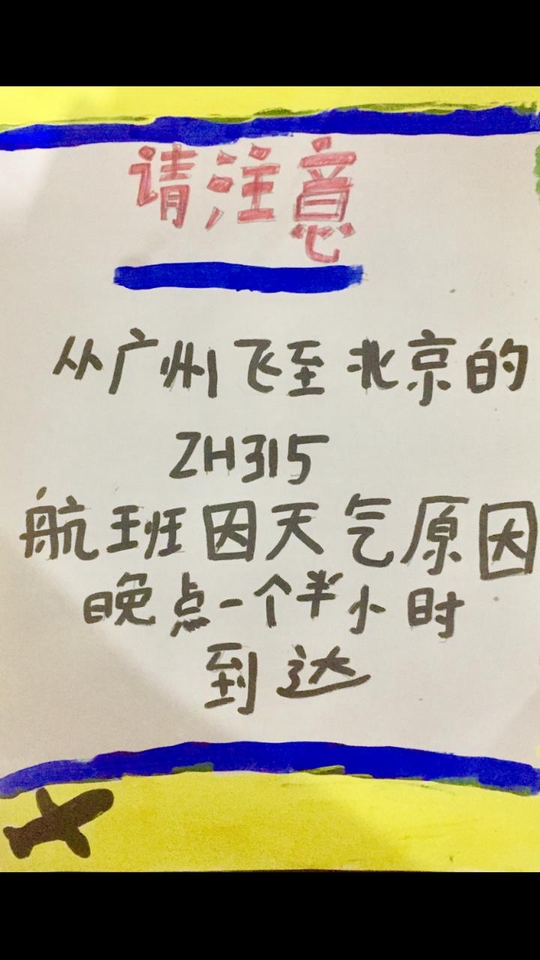 请注意
从广州飞至北京的
ZH315
航班因天气原因
晚点一个半小时
到达